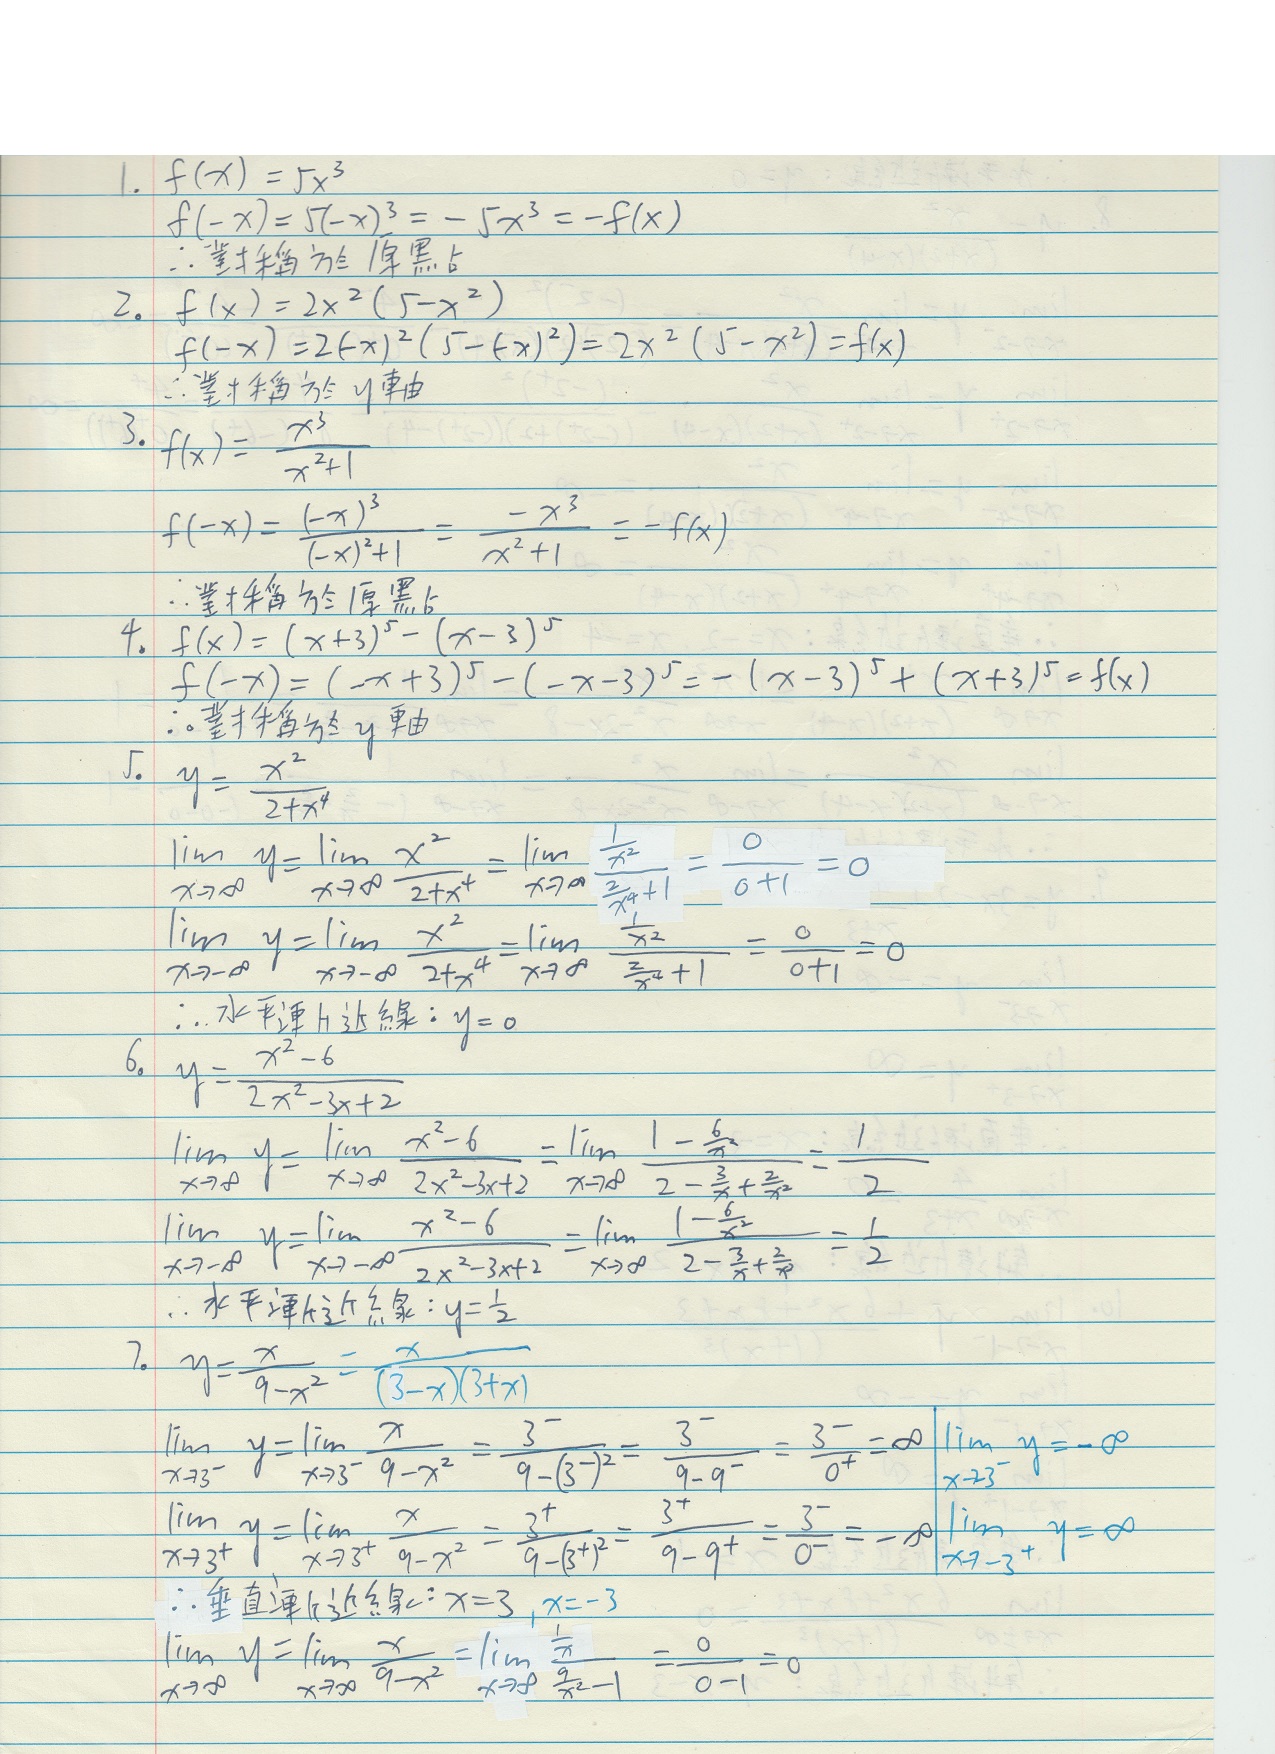 1. f(x) = 5x³
f(-x) = 5(-x)³ = - 5x³ = -f(x)
∴對稱於原點
2. f(x) = 2x²(5-x²)
f(-x) = 2(-x)²(5-(-x)²) = 2x²(5-x²) = f(x)
∴對稱於y軸
3. f(x) = x³/(x²+1)
f(-x) = (-x)³/((-x)²+1) = -x³/(x²+1) = -f(x)
∴對稱於原點
4. f(x) = (x+3)⁵ - (x-3)⁵
f(-x) = (-x+3)⁵ - (-x-3)⁵ = -(x-3)⁵ + (x+3)⁵ = f(x)
∴對稱於y軸
5. y = x²/(2+x⁴)
lim x→∞ y = lim x→∞ x²/(2+x⁴) = lim x→∞ (1/x²)/(2/x⁴+1) = 0/(0+1) = 0
lim x→-∞ y = lim x→-∞ x²/(2+x⁴) = lim x→∞ (1/x²)/(2/x⁴+1) = 0/(0+1) = 0
∴水平漸近線: y=0
6. y = (x²-6)/(2x²-3x+2)
lim x→∞ y = lim x→∞ (x²-6)/(2x²-3x+2) = lim x→∞ (1-6/x²)/(2-3/x+2/x²) = 1/2
lim x→-∞ y = lim x→-∞ (x²-6)/(2x²-3x+2) = lim x→∞ (1-6/x²)/(2-3/x+2/x²) = 1/2
∴水平漸近線: y=1/2
7. y = x/(9-x²) = x/((3-x)(3+x))
lim x→3⁻ y = lim x→3⁻ x/(9-x²) = 3⁻/(9-(3⁻)²) = 3⁻/(9-9⁻) = 3⁻/0⁺ = ∞ | lim x→3⁻ y = -∞
lim x→3⁺ y = lim x→3⁺ x/(9-x²) = 3⁺/(9-(3⁺)²) = 3⁺/(9-9⁺) = 3⁻/0⁻ = -∞ | lim x→-3⁺ y = ∞
∴垂直漸近線: x=3, x=-3
lim x→∞ y = lim x→∞ x/(9-x²) = lim x→∞ (1/x)/(9/x²-1) = 0/(0-1) = 0